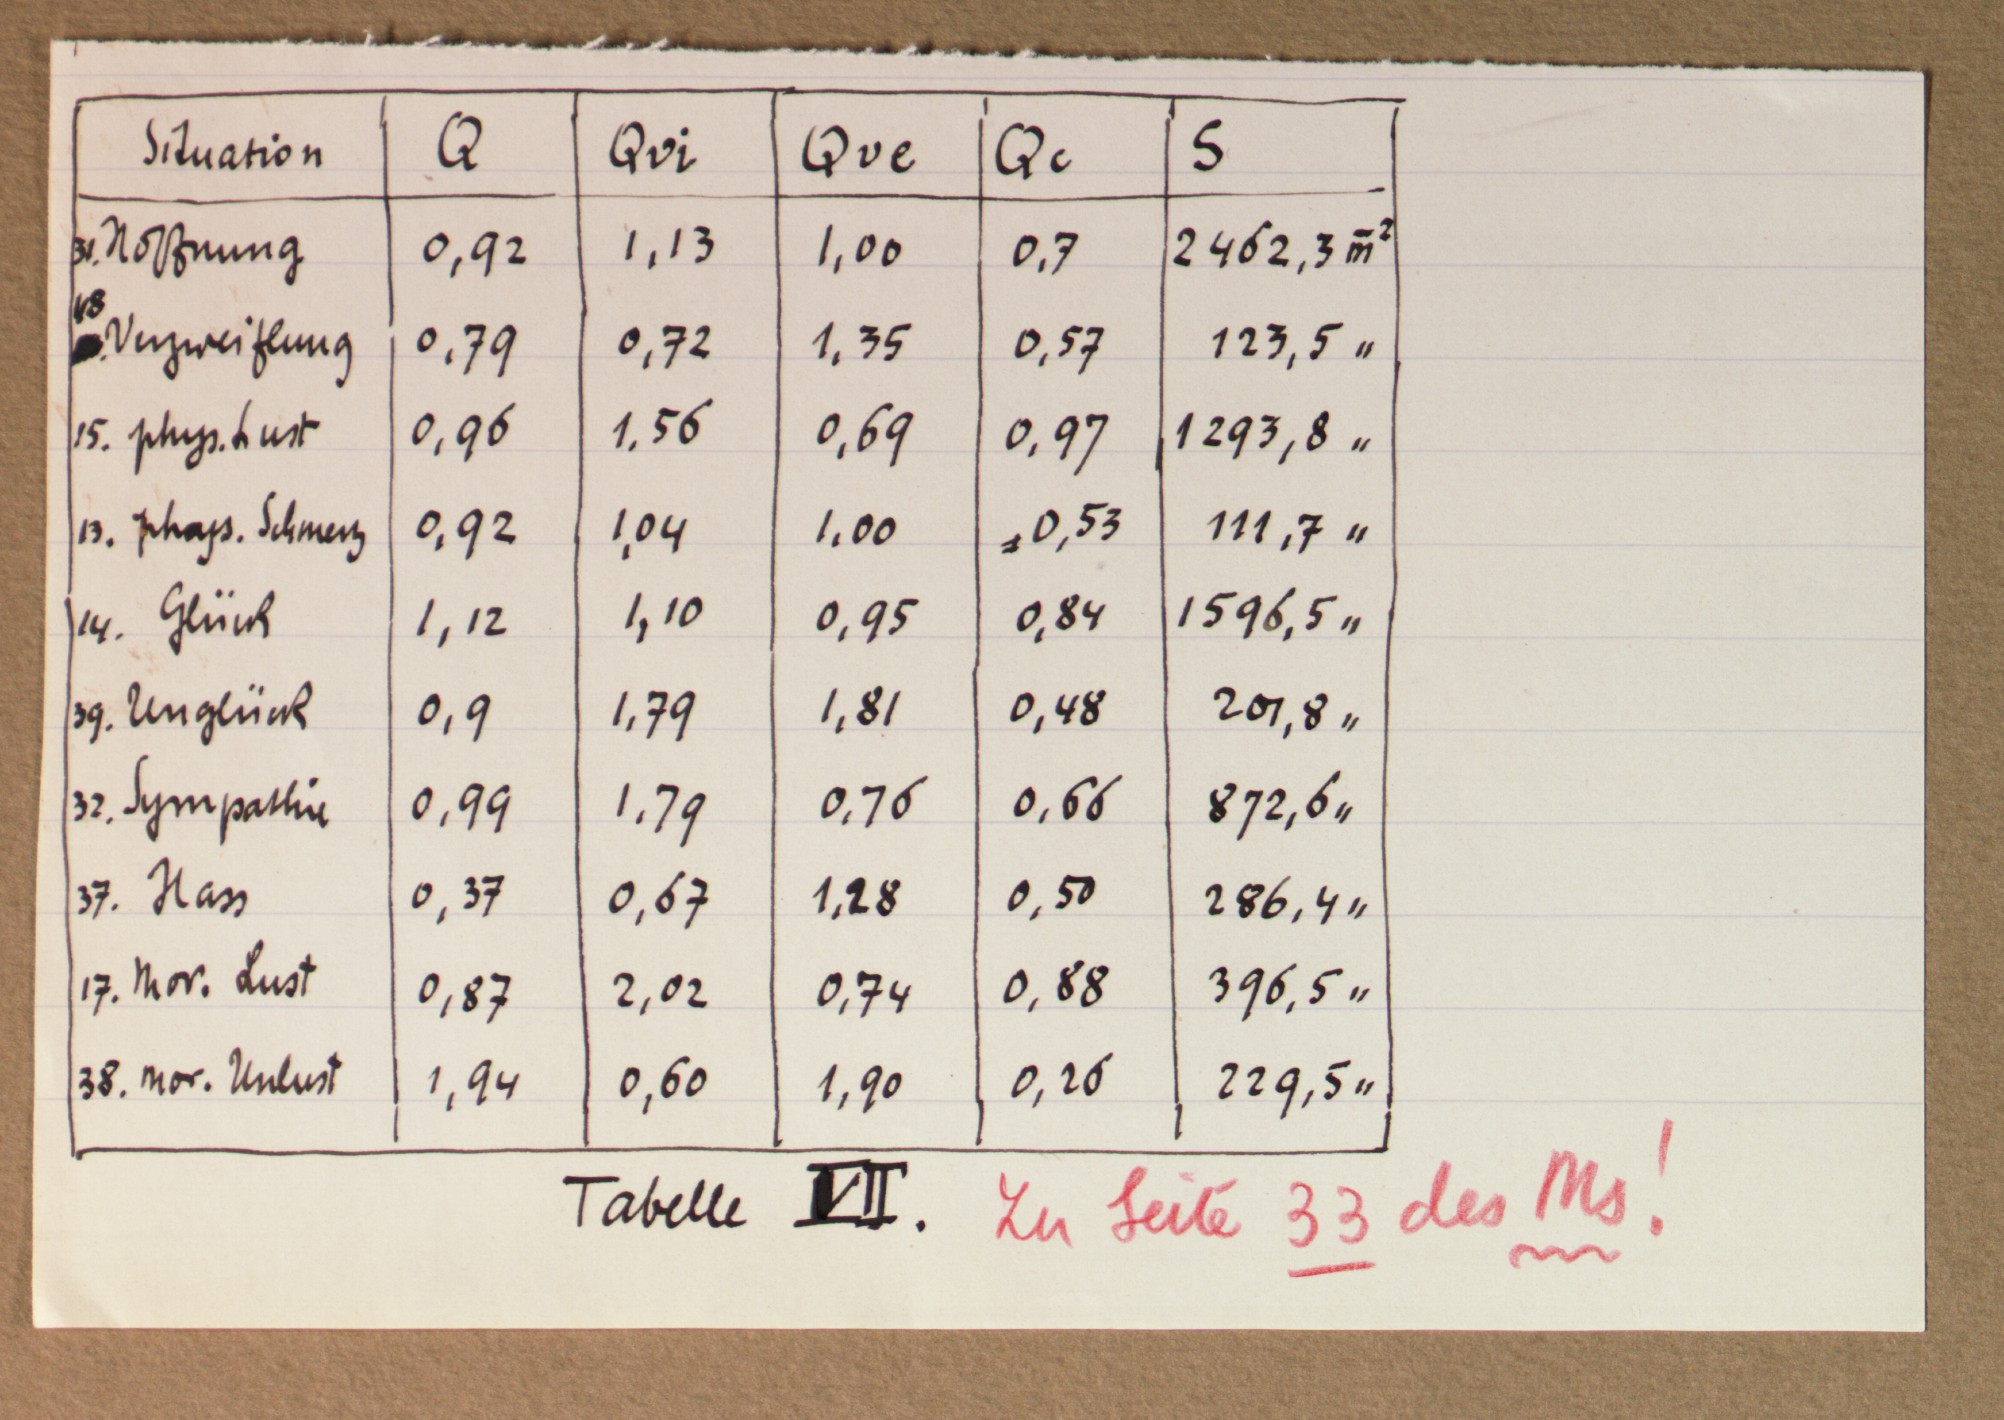 Situation Q Qvi Qve Qc S
31. Hoffnung 0,92 1,13 1,00 0,7 2462,3 m²
48. Verzweiflung 0,79 0,72 1,35 0,57 123,5 "
15. phys. Lust 0,96 1,56 0,69 0,97 1293,8 "
13. phys. Schmerz 0,92 1,04 1,00 0,53 111,7 "
14. Glück 1,12 1,10 0,95 0,84 1596,5 "
39. Unglück 0,9 1,79 1,81 0,48 201,8 "
32. Sympathie 0,99 1,79 0,76 0,66 872,6 "
37. Hass 0,37 0,67 1,28 0,50 286,4 "
17. mor. Lust 0,87 2,02 0,74 0,88 396,5 "
38. mor. Unlust 1,94 0,60 1,90 0,26 229,5 "
Tabelle VII. Zu Seite 33 des Ms!